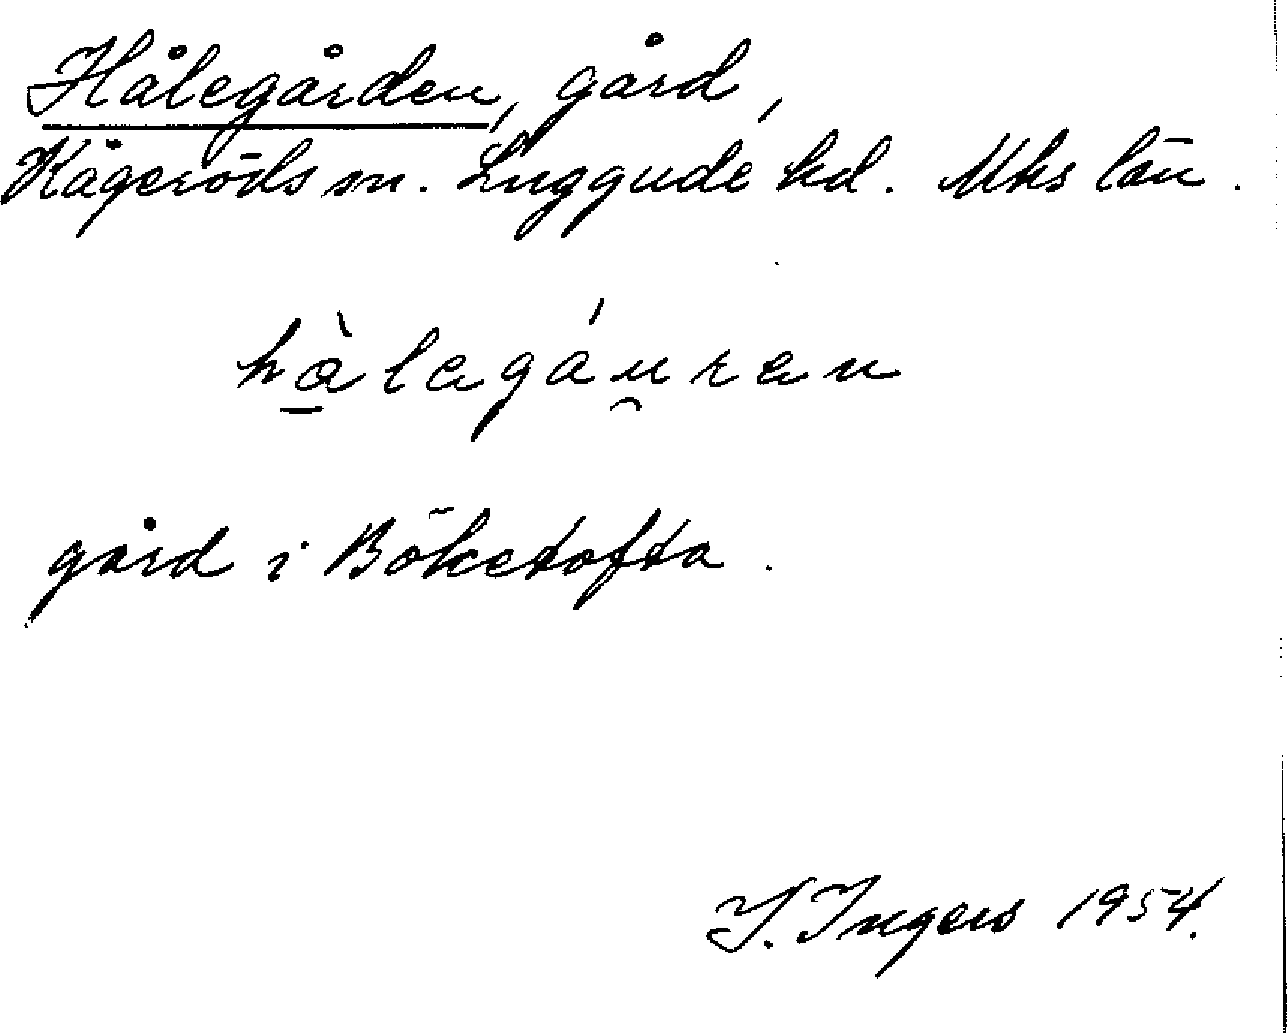 Hålegården, gård,
Kågeröds sn. Luggude hd. Mhs län.
hàlagáu̯ran
gård i Böketofta.
I. Ingers 1954.